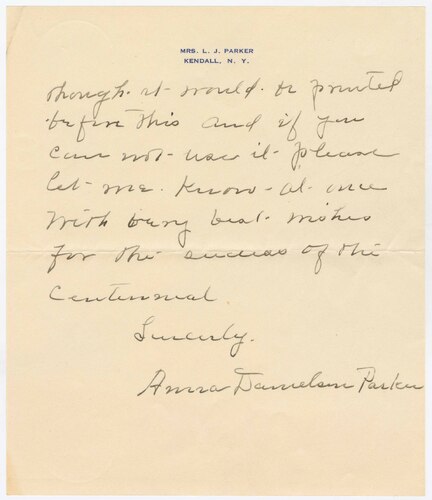 MRS. L. J. PARKER
KENDALL, N. Y.
though it would be printed
before this and if you
can not use it please
let me know at once
With very best wishes
for the success of the
Centennial
Sincerly.
Anna Danielson Parker